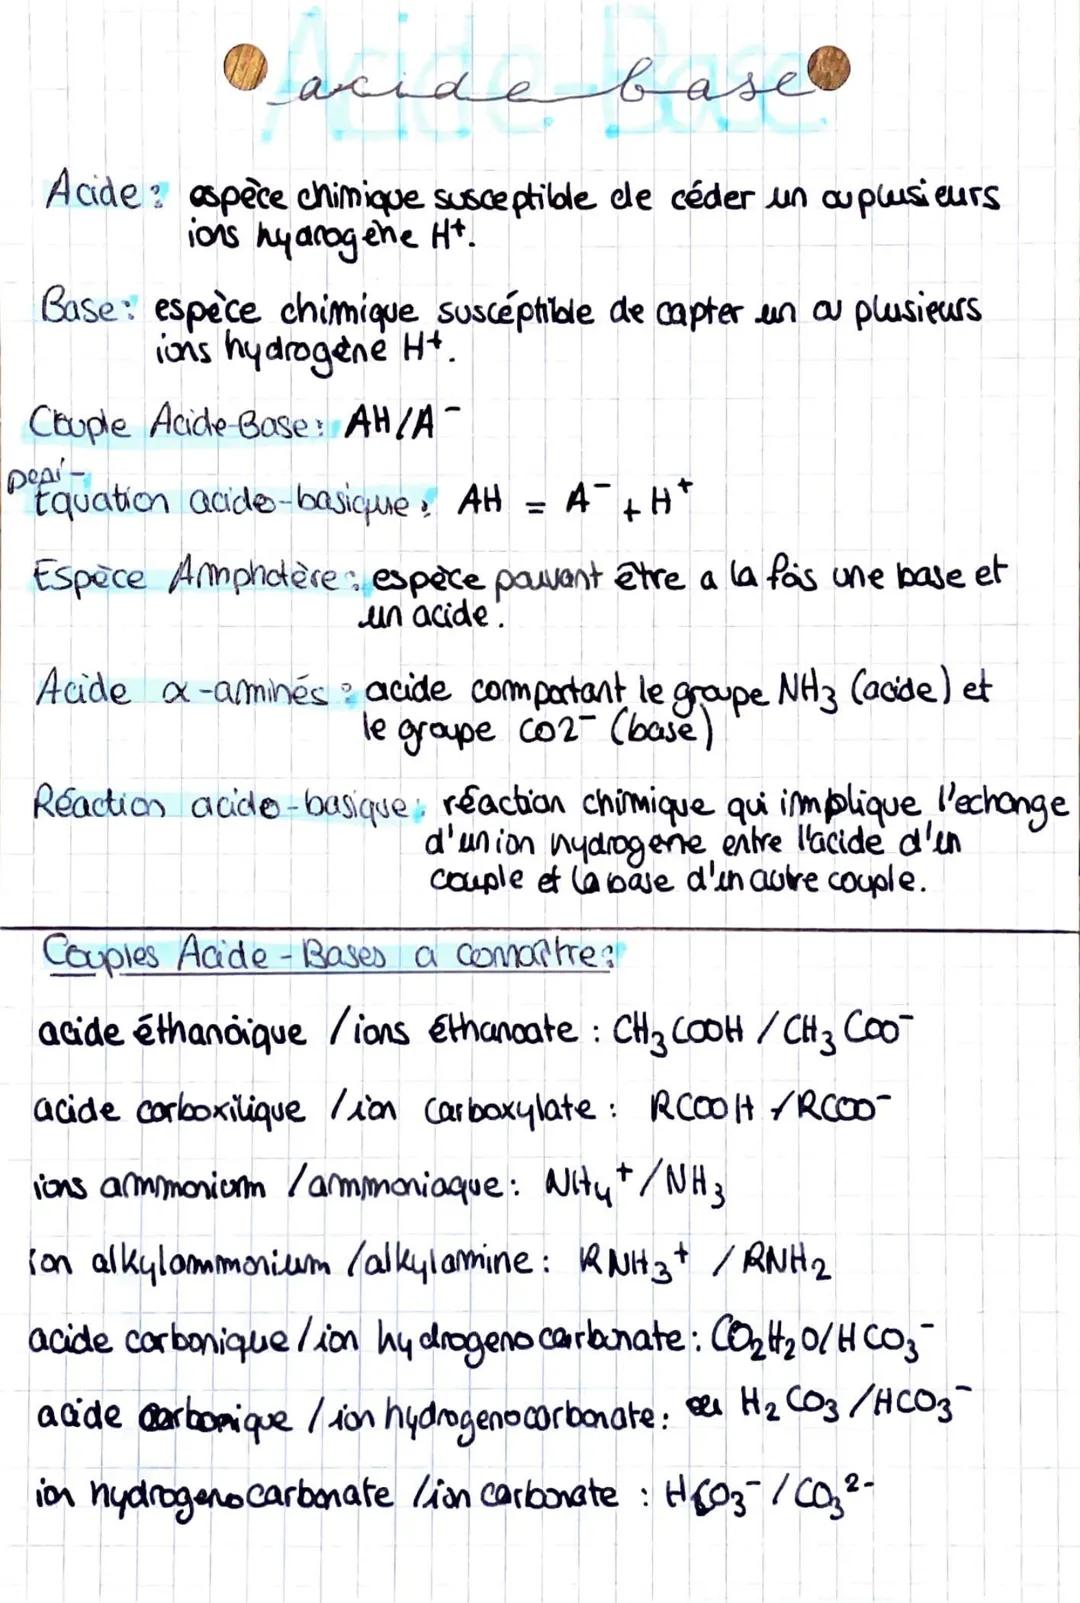 Acide-Base
acide-base
Acide : espèce chimique susceptible de céder un ou plusieurs
ions hydrogène H⁺.
Base : espèce chimique suscéptible de capter un ou plusieurs
ions hydrogène H⁺.
Couple Acide-Base : AH/A⁻
demi-
Equation acido-basique : AH = A⁻ + H⁺
Espèce Amphotère : espèce pouvant être a la fois une base et
un acide.
Acide α-aminés : acide comportant le groupe NH3 (acide) et
le groupe CO2⁻ (base)
Réaction acido-basique : réaction chimique qui implique l'echange
d'un ion hydrogene entre l'acide d'un
couple et la base d'un autre couple.
Couples Acide-Bases a connaître :
acide éthanoïque / ions éthanoate : CH₃COOH / CH₃COO⁻
acide carboxilique / ion carboxylate : RCOOH / RCOO⁻
ions ammonium / ammoniaque : NH₄⁺ / NH₃
ion alkylammonium / alkylamine : RNH₃⁺ / RNH₂
acide carbonique / ion hydrogenocarbonate : CO₂H₂O / HCO₃⁻
acide carbonique / ion hydrogenocarbonate : ou H₂CO₃ / HCO₃⁻
ion hydrogenocarbonate / ion carbonate : HCO₃⁻ / CO₃²⁻